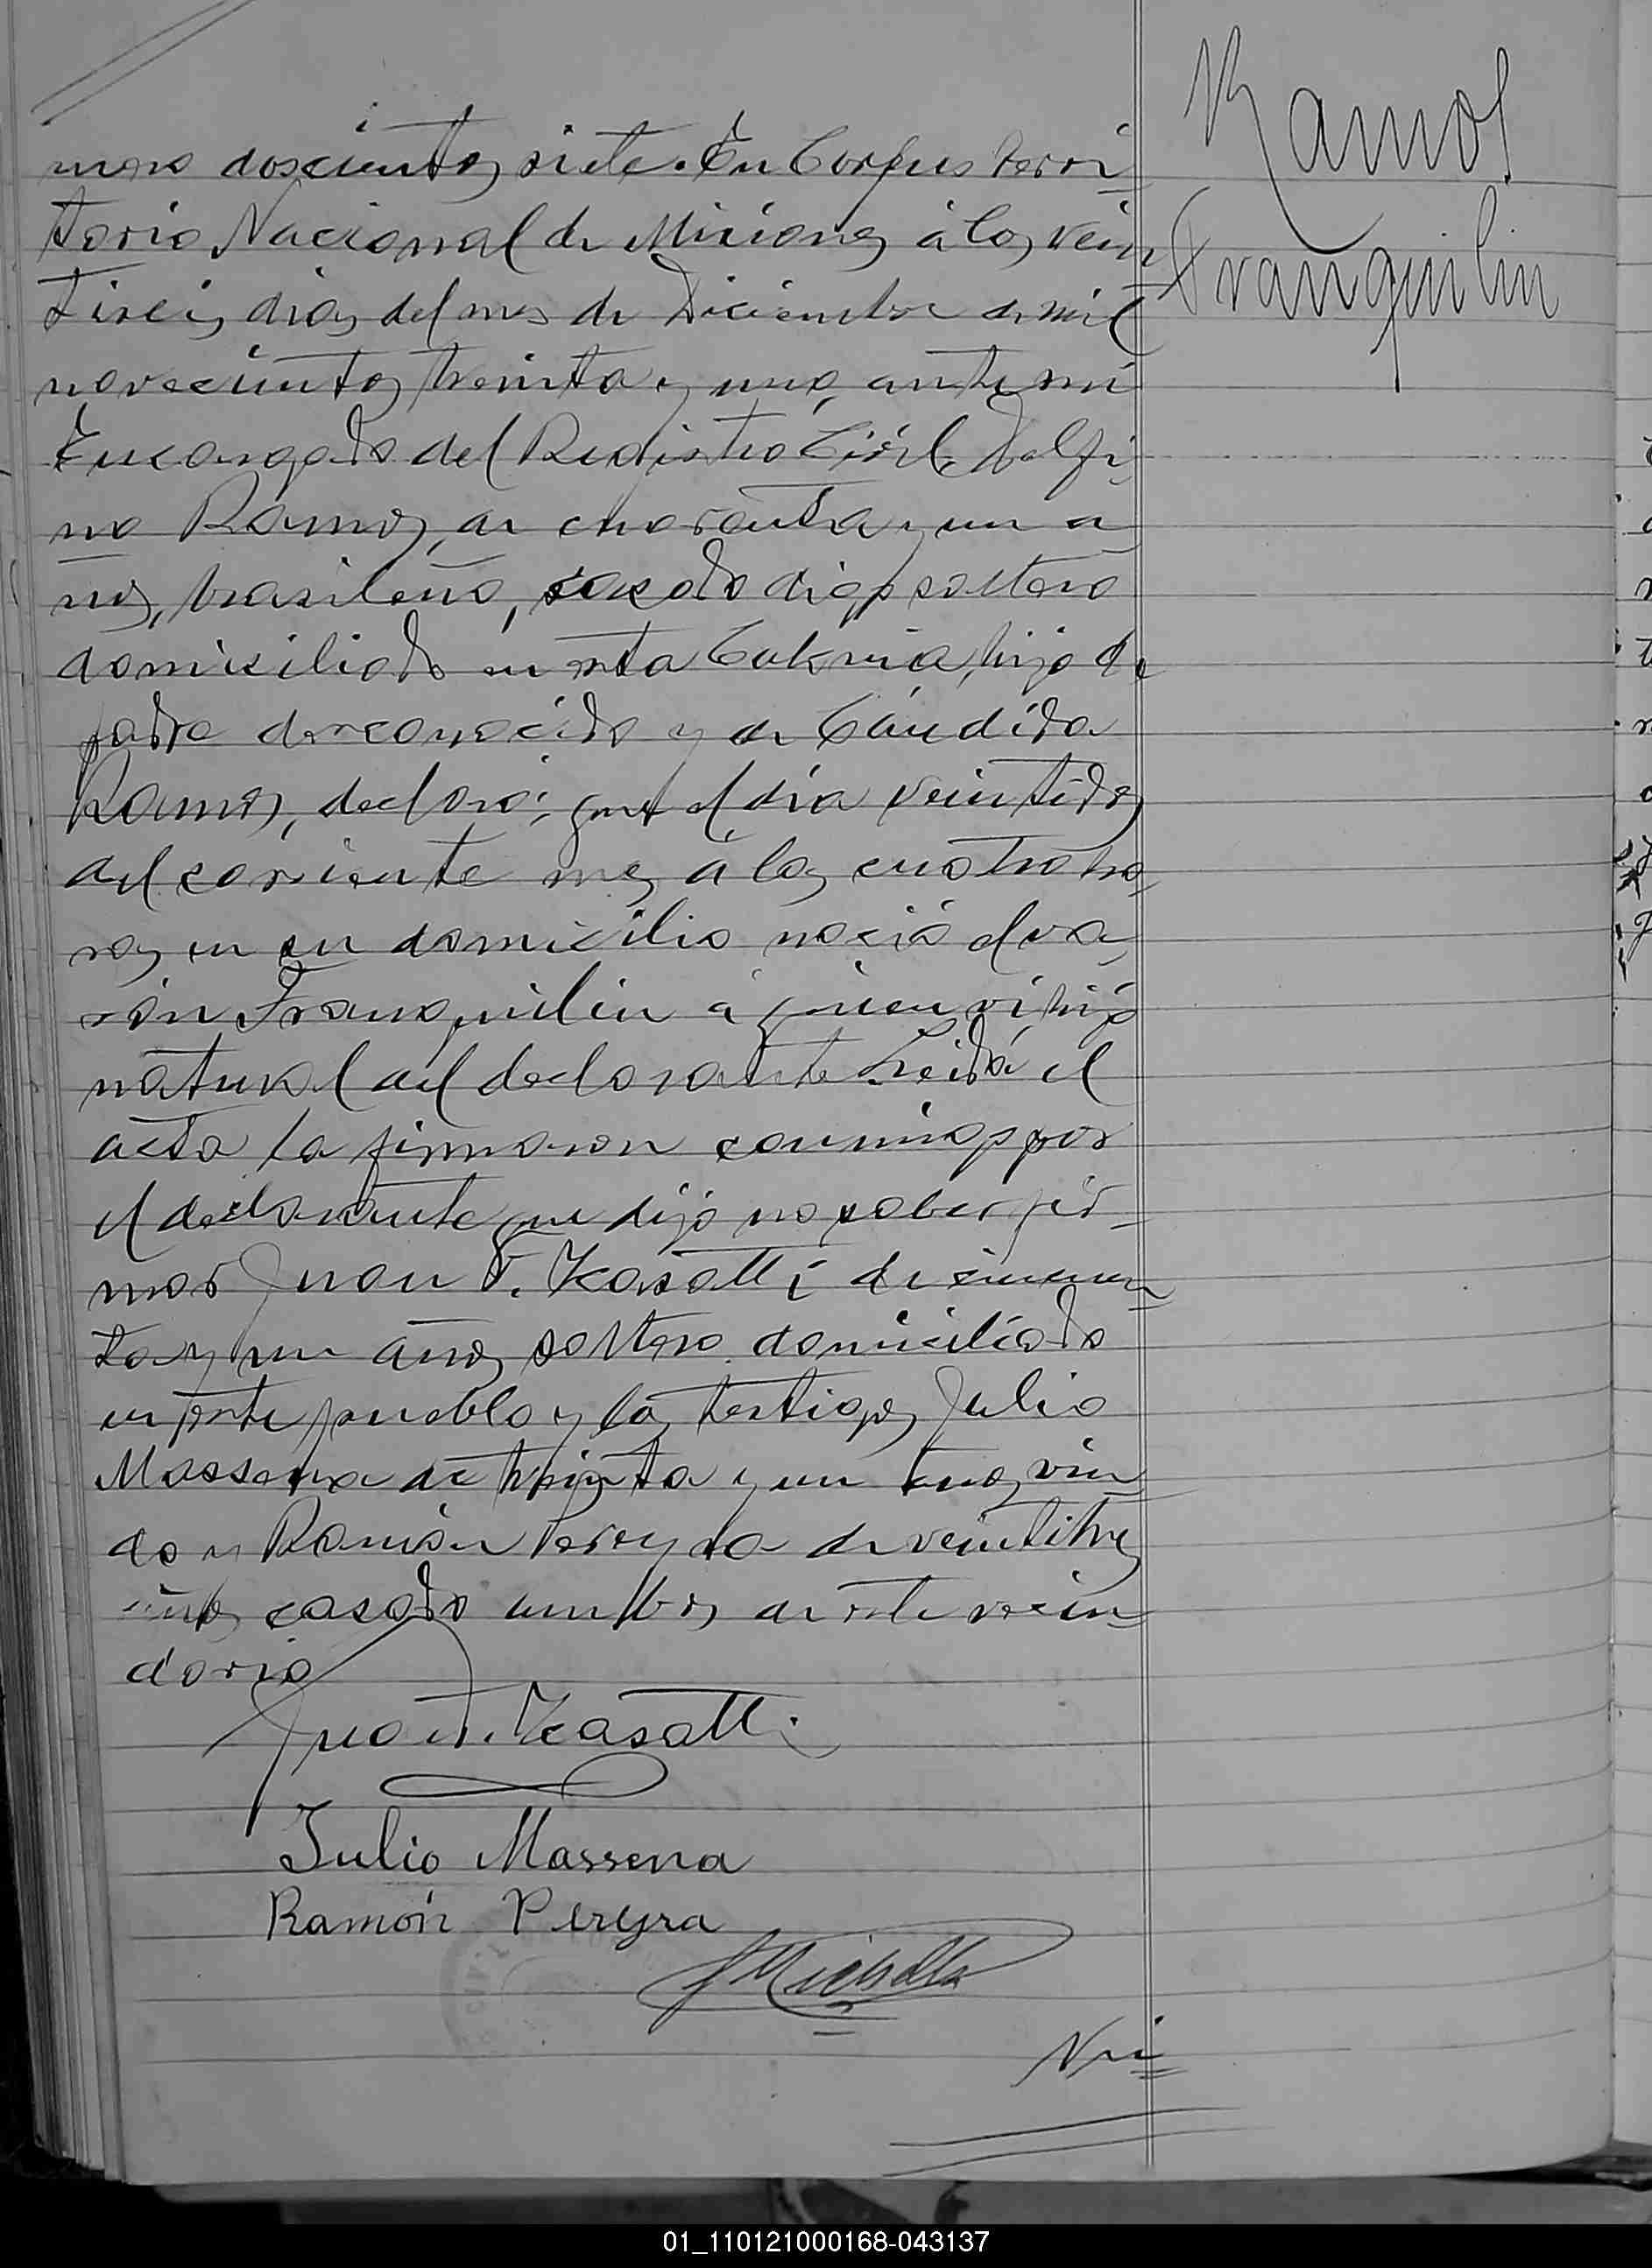 Ramos
Tranquilin
mero doscientos siete. En Corpus terri-
torio Nacional de Misiones á los vein-
tiseis dias del mes de Diciembre de mil
novecientos treinta y uno, ante mi
Encargado del Registro Civil, Delfi-
no Ramos, de cuarenta y un a-
ños, brasileño, casado digo soltero
domiciliado en esta Colonia, hijo de
padre desconocido y de Cándida
Ramos, declaró: que el día veintidos
del corriente mes á las cuatro ho-
ras en su domicilio nació el va-
rón Tranquilin á quien vi, hijo
natural del declarante. Leida el
acta la firmaron conmigo por
el declarante que dijo no saber fir-
mar Juan T. Kasatti de cincuen-
ta y un años soltero domiciliado
en este pueblo y los testigos Julio
Massena de treinta y un años viu-
do y Ramón Pereyra de veintitres
años casado ambos de este vecin-
dario
Juan T. Kasatti
Julio Massena
Ramón Pereyra
Nú-
01_110121000168-043137